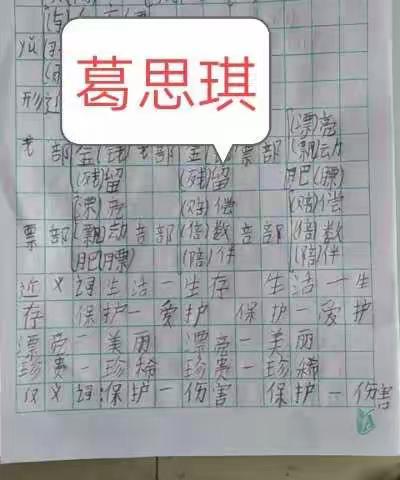 葛思琪
yǔ
部 金(钱) 部 金 票部 (漂)亮
(残)留 (残)留 (飘)动
(漂)亮 (赔)偿 肥(膘) (赔)偿
票部 (飘)动 音部 (倍)数 音部 (倍)数
肥(膘) (陪)伴 (陪)伴
近义词 生活一生存 生活一生
存 保护一爱护 保护一爱护
漂亮一美丽 漂亮一美丽
珍贵一珍稀 珍贵一珍稀
反义词:保护一伤害 保护一伤害